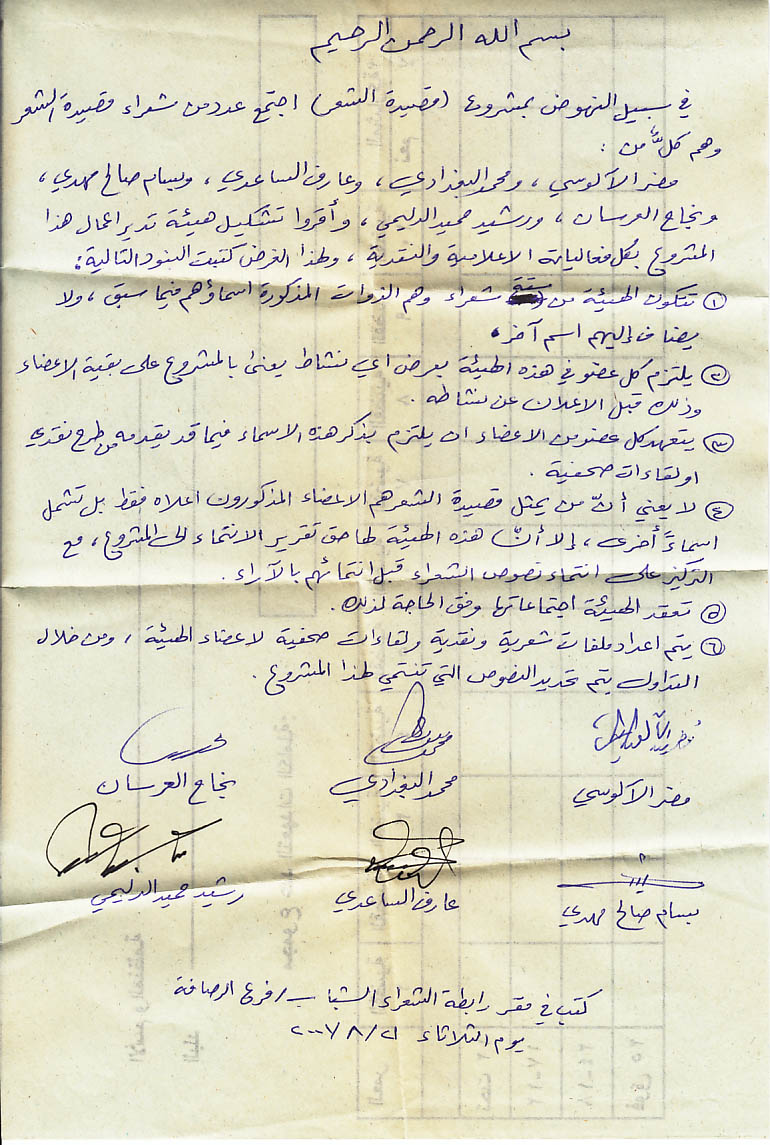 بسم الله الرحمن الرحيم
في سبيل النهوض بمشروع (قصيدة الشعر) اجتمع عدد من شعراء قصيدة الشعر
وهم كلٌّ من :
مضر الآلوسي ، ومحمد البغدادي ، وعارف الساعدي ، وبسام صالح مهدي ،
ونجاح العرسان ، ورشيد حميد الدليمي ، وأقروا تشكيل هيئة تدير اعمال هذا
المشروع بكل فعالياته الاعلامية والنقدية ، ولهذا الغرض كتبت البنود التالية :
١ تتكون الهيئة من ستة شعراء وهم الذوات المذكورة اسماؤهم فيما سبق ، ولا
يضاف إليهم اسم آخر .
٢ يلتزم كل عضو في هذه الهيئة بعرض اي نشاط يعنى بالمشروع على بقية الاعضاء
وذلك قبل الاعلان عن نشاطه .
٣ يتعهد كل عضو من الاعضاء ان يلتزم بذكر هذه الاسماء فيما قد يقدمه من طرح نقدي
او لقاءات صحفية .
٤ لا يعني أنّ من يمثل قصيدة الشعر هم الاعضاء المذكورون اعلاه فقط بل تشمل
اسماءً أخرى ، إلا أنّ هذه الهيئة لها حق تقرير الانتماء الى المشروع ، مع
التركيز على انتماء نصوص الشعراء قبل انتمائهم بالآراء .
٥ تعقد الهيئة اجتماعاتها وفق الحاجة لذلك .
٦ يتم اعداد ملفات شعرية ونقدية ولقاءات صحفية لاعضاء الهيئة ، ومن خلال
التداول يتم تحديد النصوص التي تنتمي لهذا المشروع .
مضر الآلوسي محمد البغدادي نجاح العرسان
بسام صالح مهدي عارف الساعدي رشيد حميد الدليمي
كتب في مقر رابطة الشعراء الشباب / فرع الرصافة
يوم الثلاثاء ٢١/٨/٢٠٠٧